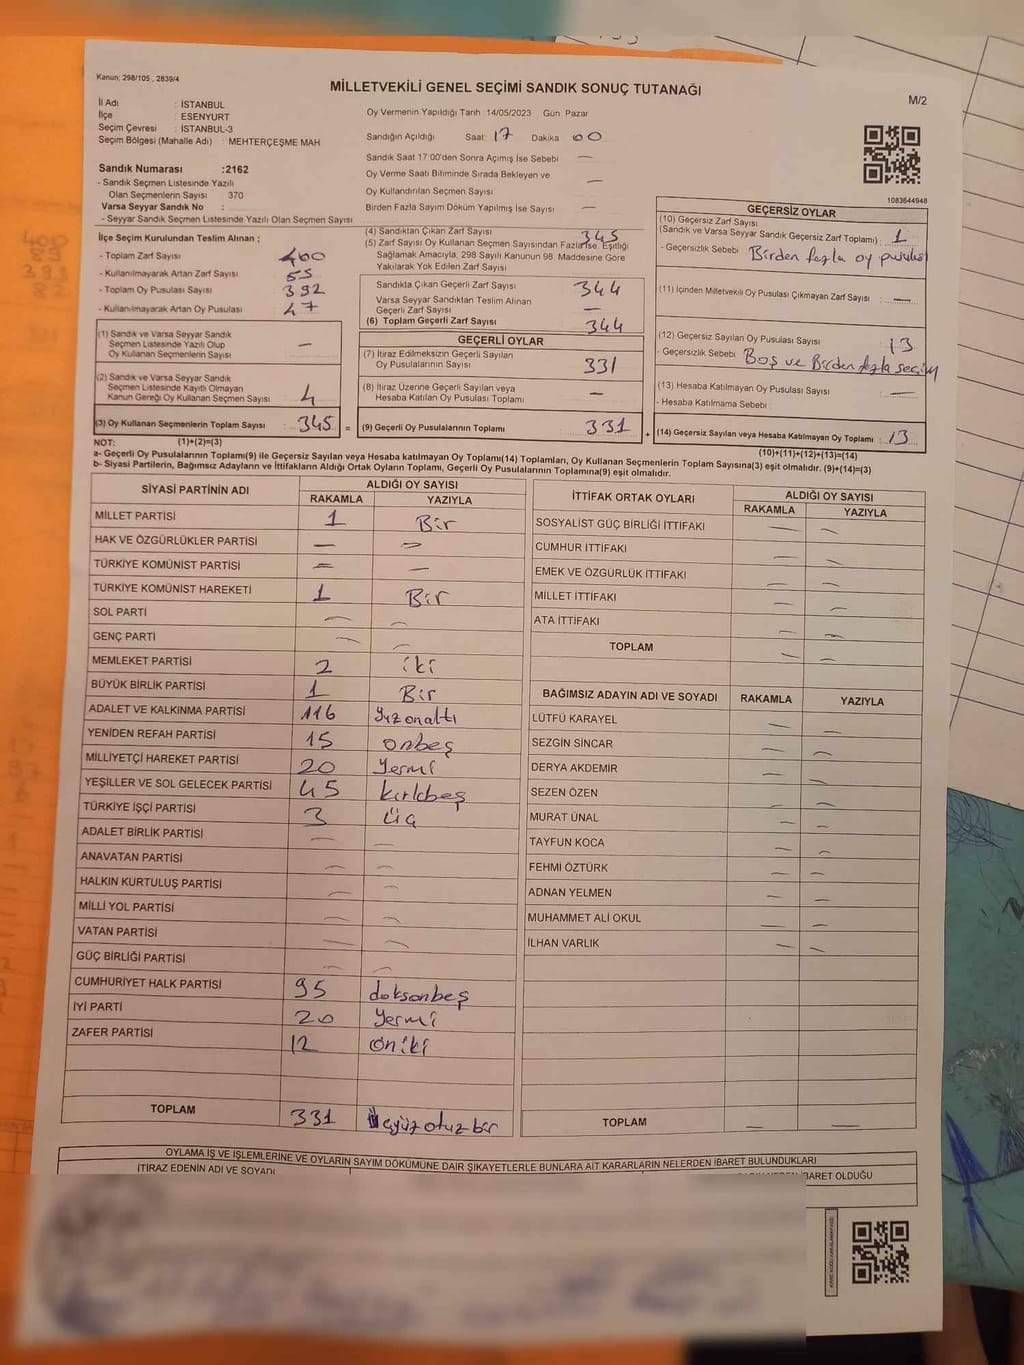 Kanun: 298/105 , 2839/4
MİLLETVEKİLİ GENEL SEÇİMİ SANDIK SONUÇ TUTANAĞI
M/2
İl Adı : İSTANBUL
İlçe : ESENYURT
Seçim Çevresi : İSTANBUL-3
Seçim Bölgesi (Mahalle Adı) : MEHTERÇEŞME MAH
Sandık Numarası :2162
- Sandık Seçmen Listesinde Yazılı
Olan Seçmenlerin Sayısı : 370
Varsa Seyyar Sandık No :
- Seyyar Sandık Seçmen Listesinde Yazılı Olan Seçmen Sayısı
Oy Vermenin Yapıldığı Tarih :14/05/2023 Gün: Pazar
Sandığın Açıldığı Saat: 17 Dakika 00
Sandık Saat 17:00'den Sonra Açımış İse Sebebi —
Oy Verme Saati Bitiminde Sırada Bekleyen ve
Oy Kullandırılan Seçmen Sayısı —
Birden Fazla Sayım Döküm Yapılmış İse Sayısı —
1083644948
İlçe Seçim Kurulundan Teslim Alınan ;
- Toplam Zarf Sayısı 400
- Kullanılmayarak Artan Zarf Sayısı 55
- Toplam Oy Pusulası Sayısı 392
- Kullanılmayarak Artan Oy Pusulası 47
(1) Sandık ve Varsa Seyyar Sandık
Seçmen Listesinde Yazılı Olup
Oy Kullanan Seçmenlerin Sayısı —
(2) Sandık ve Varsa Seyyar Sandık
Seçmen Listesinde Kayıtlı Olmayan
Kanun Gereği Oy Kullanan Seçmen Sayısı 4
(3) Oy Kullanan Seçmenlerin Toplam Sayısı : 345 =
(4) Sandıktan Çıkan Zarf Sayısı 345
(5) Zarf Sayısı Oy Kullanan Seçmen Sayısından Fazla İse, Eşitliği
Sağlamak Amacıyla, 298 Sayılı Kanunun 98. Maddesine Göre
Yakılarak Yok Edilen Zarf Sayısı
Sandıkta Çıkan Geçerli Zarf Sayısı 344
Varsa Seyyar Sandıktan Teslim Alınan
Geçerli Zarf Sayısı —
(6) Toplam Geçerli Zarf Sayısı 344
GEÇERLİ OYLAR
(7) İtiraz Edilmeksizin Geçerli Sayılan
Oy Pusulalarının Sayısı 331
(8) İtiraz Üzerine Geçerli Sayılan veya
Hesaba Katılan Oy Pusulası Toplamı —
(9) Geçerli Oy Pusulalarının Toplamı 331 +
GEÇERSİZ OYLAR
(10) Geçersiz Zarf Sayısı
(Sandık ve Varsa Seyyar Sandık Geçersiz Zarf Toplamı) : 1
- Geçersizlik Sebebi Birden fazla oy pusulası
(11) İçinden Milletvekili Oy Pusulası Çıkmayan Zarf Sayısı : —
(12) Geçersiz Sayılan Oy Pusulası Sayısı 13
- Geçersizlik Sebebi Boş ve Birden fazla seçim
(13) Hesaba Katılmayan Oy Pusulası Sayısı —
- Hesaba Katılmama Sebebi
(14) Geçersiz Sayılan veya Hesaba Katılmayan Oy Toplamı : 13
NOT: (1)+(2)=(3) (10)+(11)+(12)+(13)=(14)
a- Geçerli Oy Pusulaları Toplamı(9) ile Geçersiz Sayılan veya Hesaba katılmayan Oy Toplamı(14) Toplamları, Oy Kullanan Seçmenlerin Toplam Sayısına(3) eşit olmalıdır. (9)+(14)=(3)
b- Siyasi Partilerin, Bağımsız Adayların ve İttifakların Aldığı Ortak Oyların Toplamı, Geçerli Oy Pusulalarının Toplamına(9) eşit olmalıdır.
SİYASİ PARTİNİN ADI ALDIĞI OY SAYISI
RAKAMLA YAZIYLA
MİLLET PARTİSİ 1 Bir
HAK VE ÖZGÜRLÜKLER PARTİSİ — —
TÜRKİYE KOMÜNİST PARTİSİ — —
TÜRKİYE KOMÜNİST HAREKETİ 1 Bir
SOL PARTİ — —
GENÇ PARTİ — —
MEMLEKET PARTİSİ 2 iki
BÜYÜK BİRLİK PARTİSİ 1 Bir
ADALET VE KALKINMA PARTİSİ 116 Yüzonaltı
YENİDEN REFAH PARTİSİ 15 onbeş
MİLLİYETÇİ HAREKET PARTİSİ 20 Yermi
YEŞİLLER VE SOL GELECEK PARTİSİ 45 kırkbeş
TÜRKİYE İŞÇİ PARTİSİ 3 üç
ADALET BİRLİK PARTİSİ — —
ANAVATAN PARTİSİ — —
HALKIN KURTULUŞ PARTİSİ — —
MİLLİ YOL PARTİSİ — —
VATAN PARTİSİ — —
GÜÇ BİRLİĞİ PARTİSİ — —
CUMHURİYET HALK PARTİSİ 95 doksanbeş
İYİ PARTİ 20 Yermi
ZAFER PARTİSİ 12 oniki
TOPLAM 331 üçyüzotuzbir
İTTİFAK ORTAK OYLARI ALDIĞI OY SAYISI
RAKAMLA YAZIYLA
SOSYALİST GÜÇ BİRLİĞİ İTTİFAKI — —
CUMHUR İTTİFAKI — —
EMEK VE ÖZGÜRLÜK İTTİFAKI — —
MİLLET İTTİFAKI — —
ATA İTTİFAKI — —
TOPLAM — —
BAĞIMSIZ ADAYIN ADI VE SOYADI RAKAMLA YAZIYLA
LÜTFÜ KARAYEL — —
SEZGİN SİNCAR — —
DERYA AKDEMİR — —
SEZEN ÖZEN — —
MURAT ÜNAL — —
TAYFUN KOCA — —
FEHMİ ÖZTÜRK — —
ADNAN YELMEN — —
MUHAMMET ALİ OKUL — —
İLHAN VARLIK — —
TOPLAM — —
OYLAMA İŞ VE İŞLEMLERİNE VE OYLARIN SAYIM DÖKÜMÜNE DAİR ŞİKAYETLERLE BUNLARA AİT KARARLARIN NELERDEN İBARET BULUNDUKLARI
İTİRAZ EDENİN ADI VE SOYADI İBARET OLDUĞU